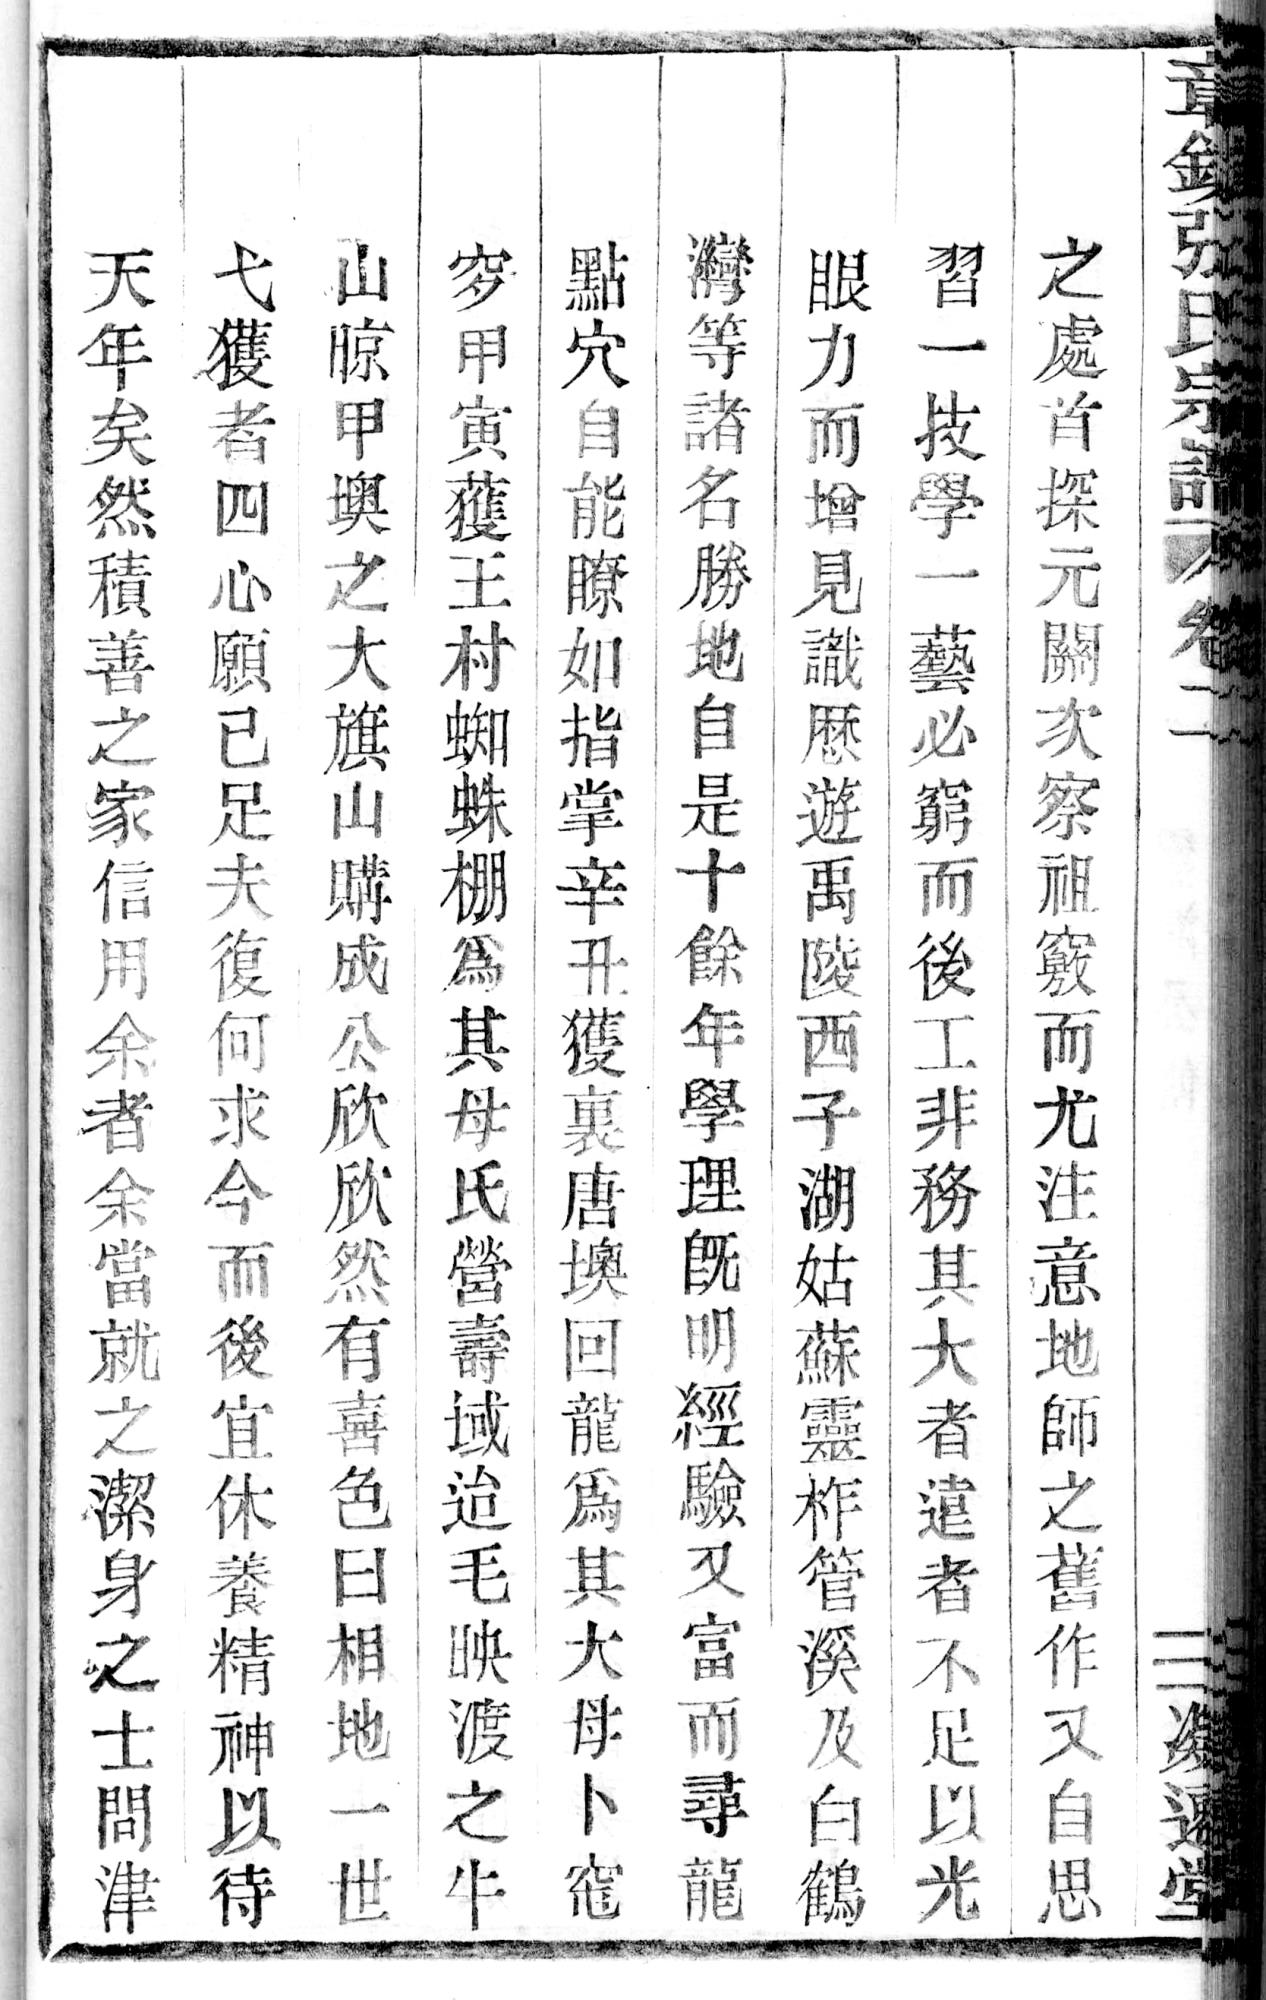 章鎮張氏宗譜 卷二 二 遂堂
之處首探元關次察祖竅而尤注意地師之舊作又自思
習一技學一藝必窮而後工非務其大者遠者不足以光
眼力而增見識歷遊禹陵西子湖姑蘇靈柞管溪及白鶴
灣等諸名勝地自是十餘年學理旣明經驗又富而尋龍
點穴自能瞭如指掌辛丑獲裏唐墺回龍爲其大母卜窀
穸甲寅獲王村蜘蛛棚爲其母氏營壽域迨毛映渡之牛
山晾甲墺之大旗山購成公欣欣然有喜色曰相地一世
弋獲者四心願已足夫復何求今而後宜休養精神以待
天年矣然積善之家信用余者余當就之潔身之士問津